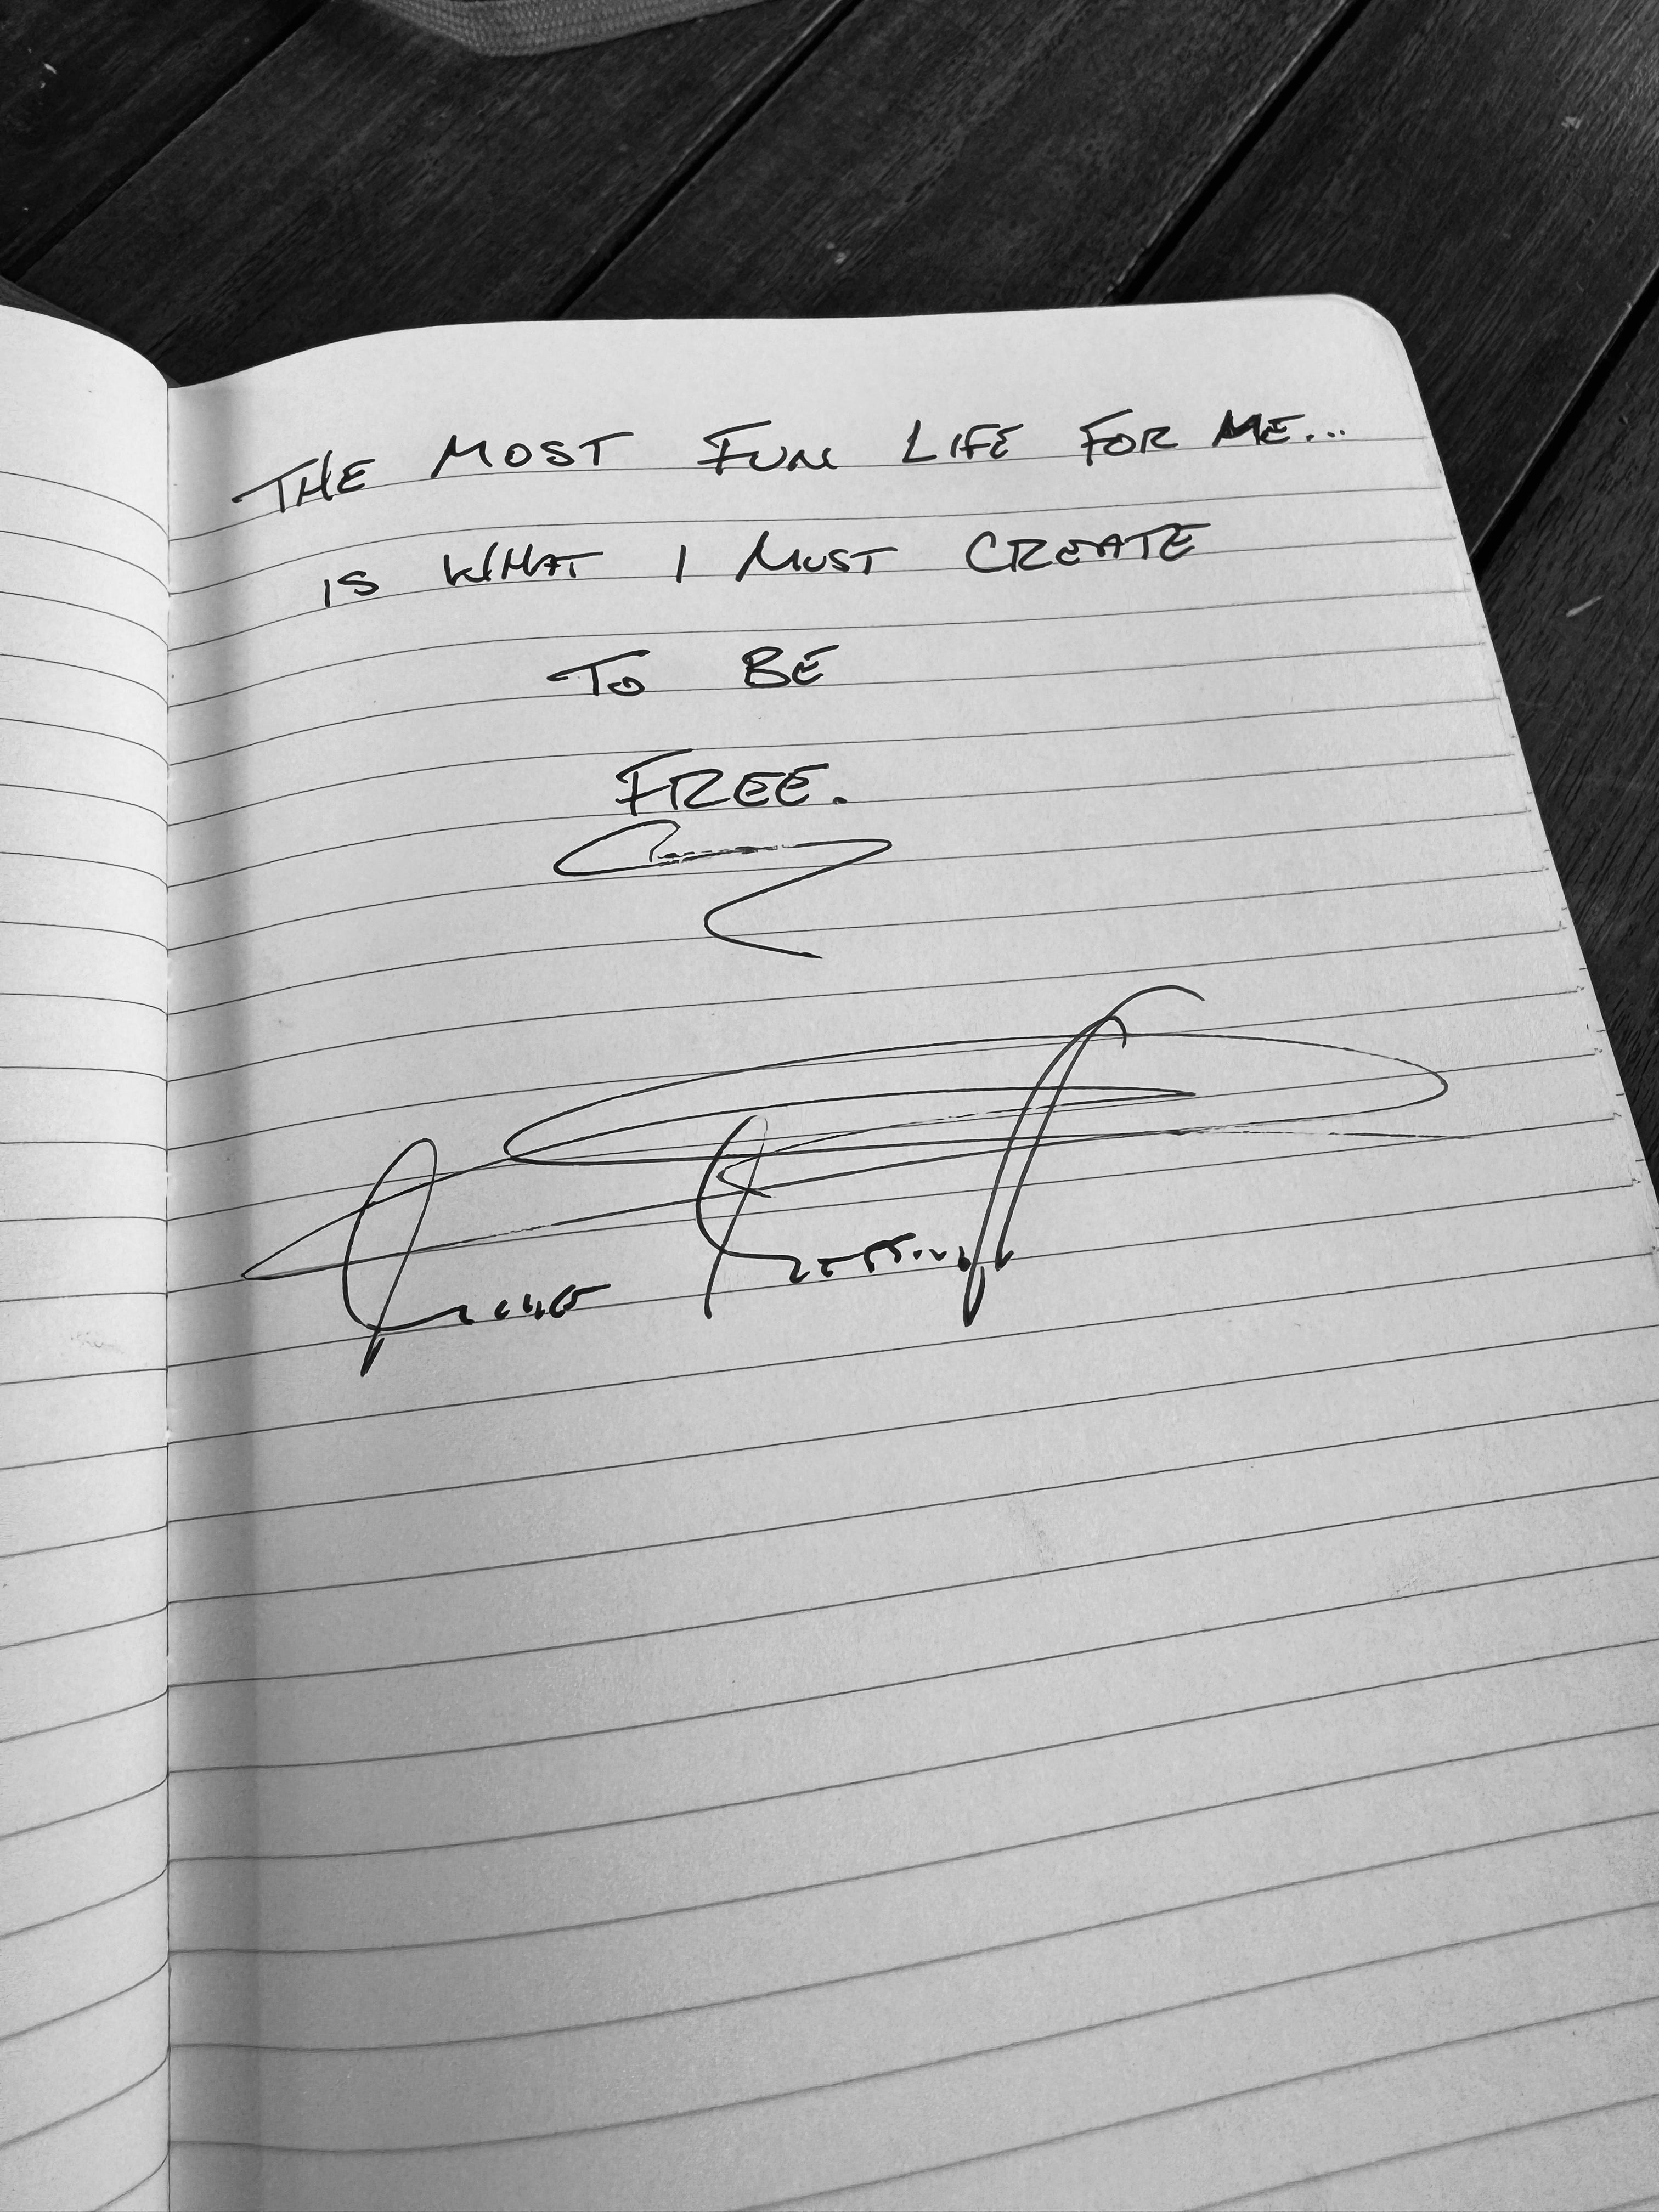 THE MOST FUN LIFE FOR ME...
IS WHAT I MUST CREATE
TO BE
FREE.